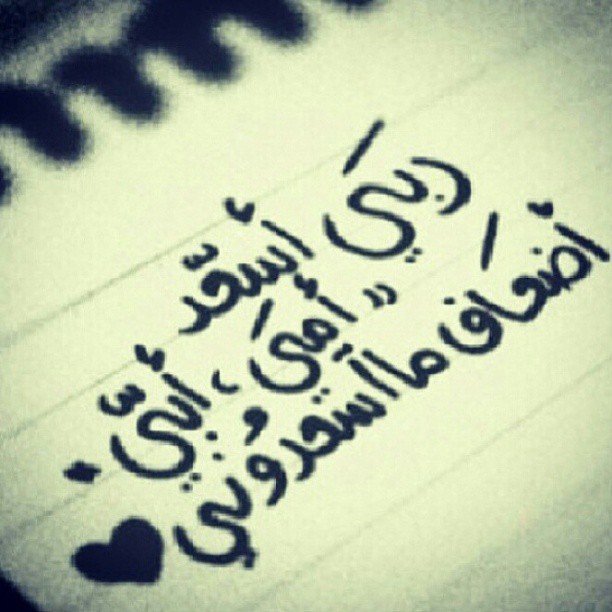 ربيَ أسعدّ
" أميَ ، أبيّ .
أضعاف ما أسعدُوني ♥